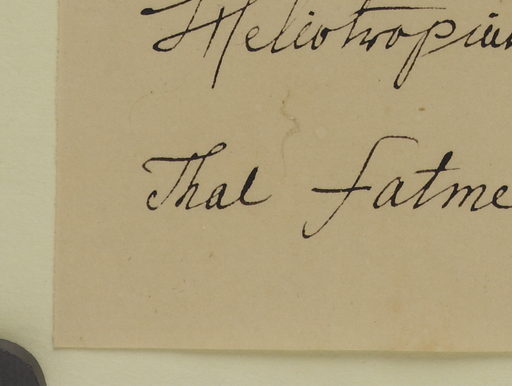 Heliotropiu
Thal Fatme